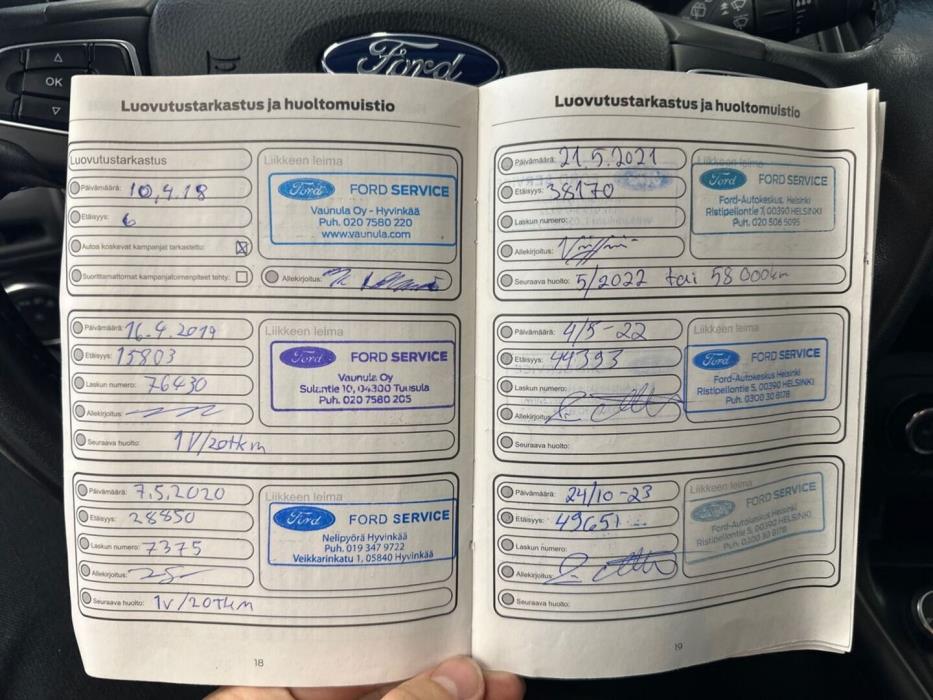 OK
Ford
Luovutustarkastus ja huoltomuistio
Luovutustarkastus
Päivämäärä: 10,4.18
Etäisyys: 6
Autoa koskevat kampanjat tarkastettu:
Suorittamattomat kampanjatoimenpiteet tehty:
Liikkeen leima
Ford FORD SERVICE
Vaunula Oy - Hyvinkää
Puh. 020 7580 220
www.vaunula.com
Allekirjoitus:
Päivämäärä: 16.4.2019
Etäisyys: 15803
Laskun numero: 76430
Allekirjoitus:
Seuraava huolto: 1V/20tkm
Liikkeen leima
Ford FORD SERVICE
Vaunula Oy
Sulantie 10, 04300 Tuusula
Puh. 020 7580 205
Päivämäärä: 7.5.2020
Etäisyys: 28850
Laskun numero: 7375
Allekirjoitus:
Seuraava huolto: 1v/20Tkm
Liikkeen leima
Ford FORD SERVICE
Nelipyörä Hyvinkää
Puh. 019 347 9722
Veikkarinkatu 1, 05840 Hyvinkää
18
Luovutustarkastus ja huoltomuistio
Päivämäärä: 21.5.2021
Etäisyys: 38170
Laskun numero:
Allekirjoitus:
Seuraava huolto: 5/2022 tai 58 000km
Liikkeen leima
Ford FORD SERVICE
Ford-Autokeskus, Helsinki
Ristipellontie 7, 00390 HELSINKI
Puh. 020 506 5095
Päivämäärä: 4/5-22
Etäisyys: 44393
Laskun numero:
Allekirjoitus:
Seuraava huolto:
Liikkeen leima
Ford FORD SERVICE
Ford-Autokeskus Helsinki
Ristipellontie 5, 00390 HELSINKI
Puh. 0300 30 8178
Päivämäärä: 24/10-23
Etäisyys: 49651
Laskun numero:
Allekirjoitus:
Seuraava huolto:
Liikkeen leima
Ford FORD SERVICE
Ford-Autokeskus Helsinki
Ristipellontie 5, 00390 HELSINKI
Puh. 0300 30 8178
19